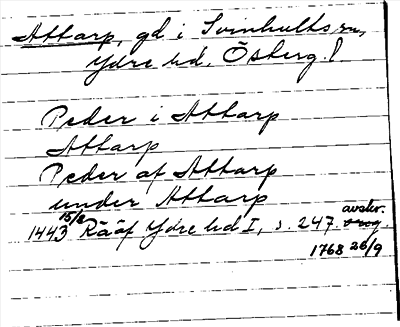 Attarp, gd i Svinhults sn,
Ydre hd, Österg.!
Peder i Attarp
Attarp
Peder af Attarp
under Attarp
1443 15/8 Rääf Ydre hd I, s. 247. avskr.
1768 26/9